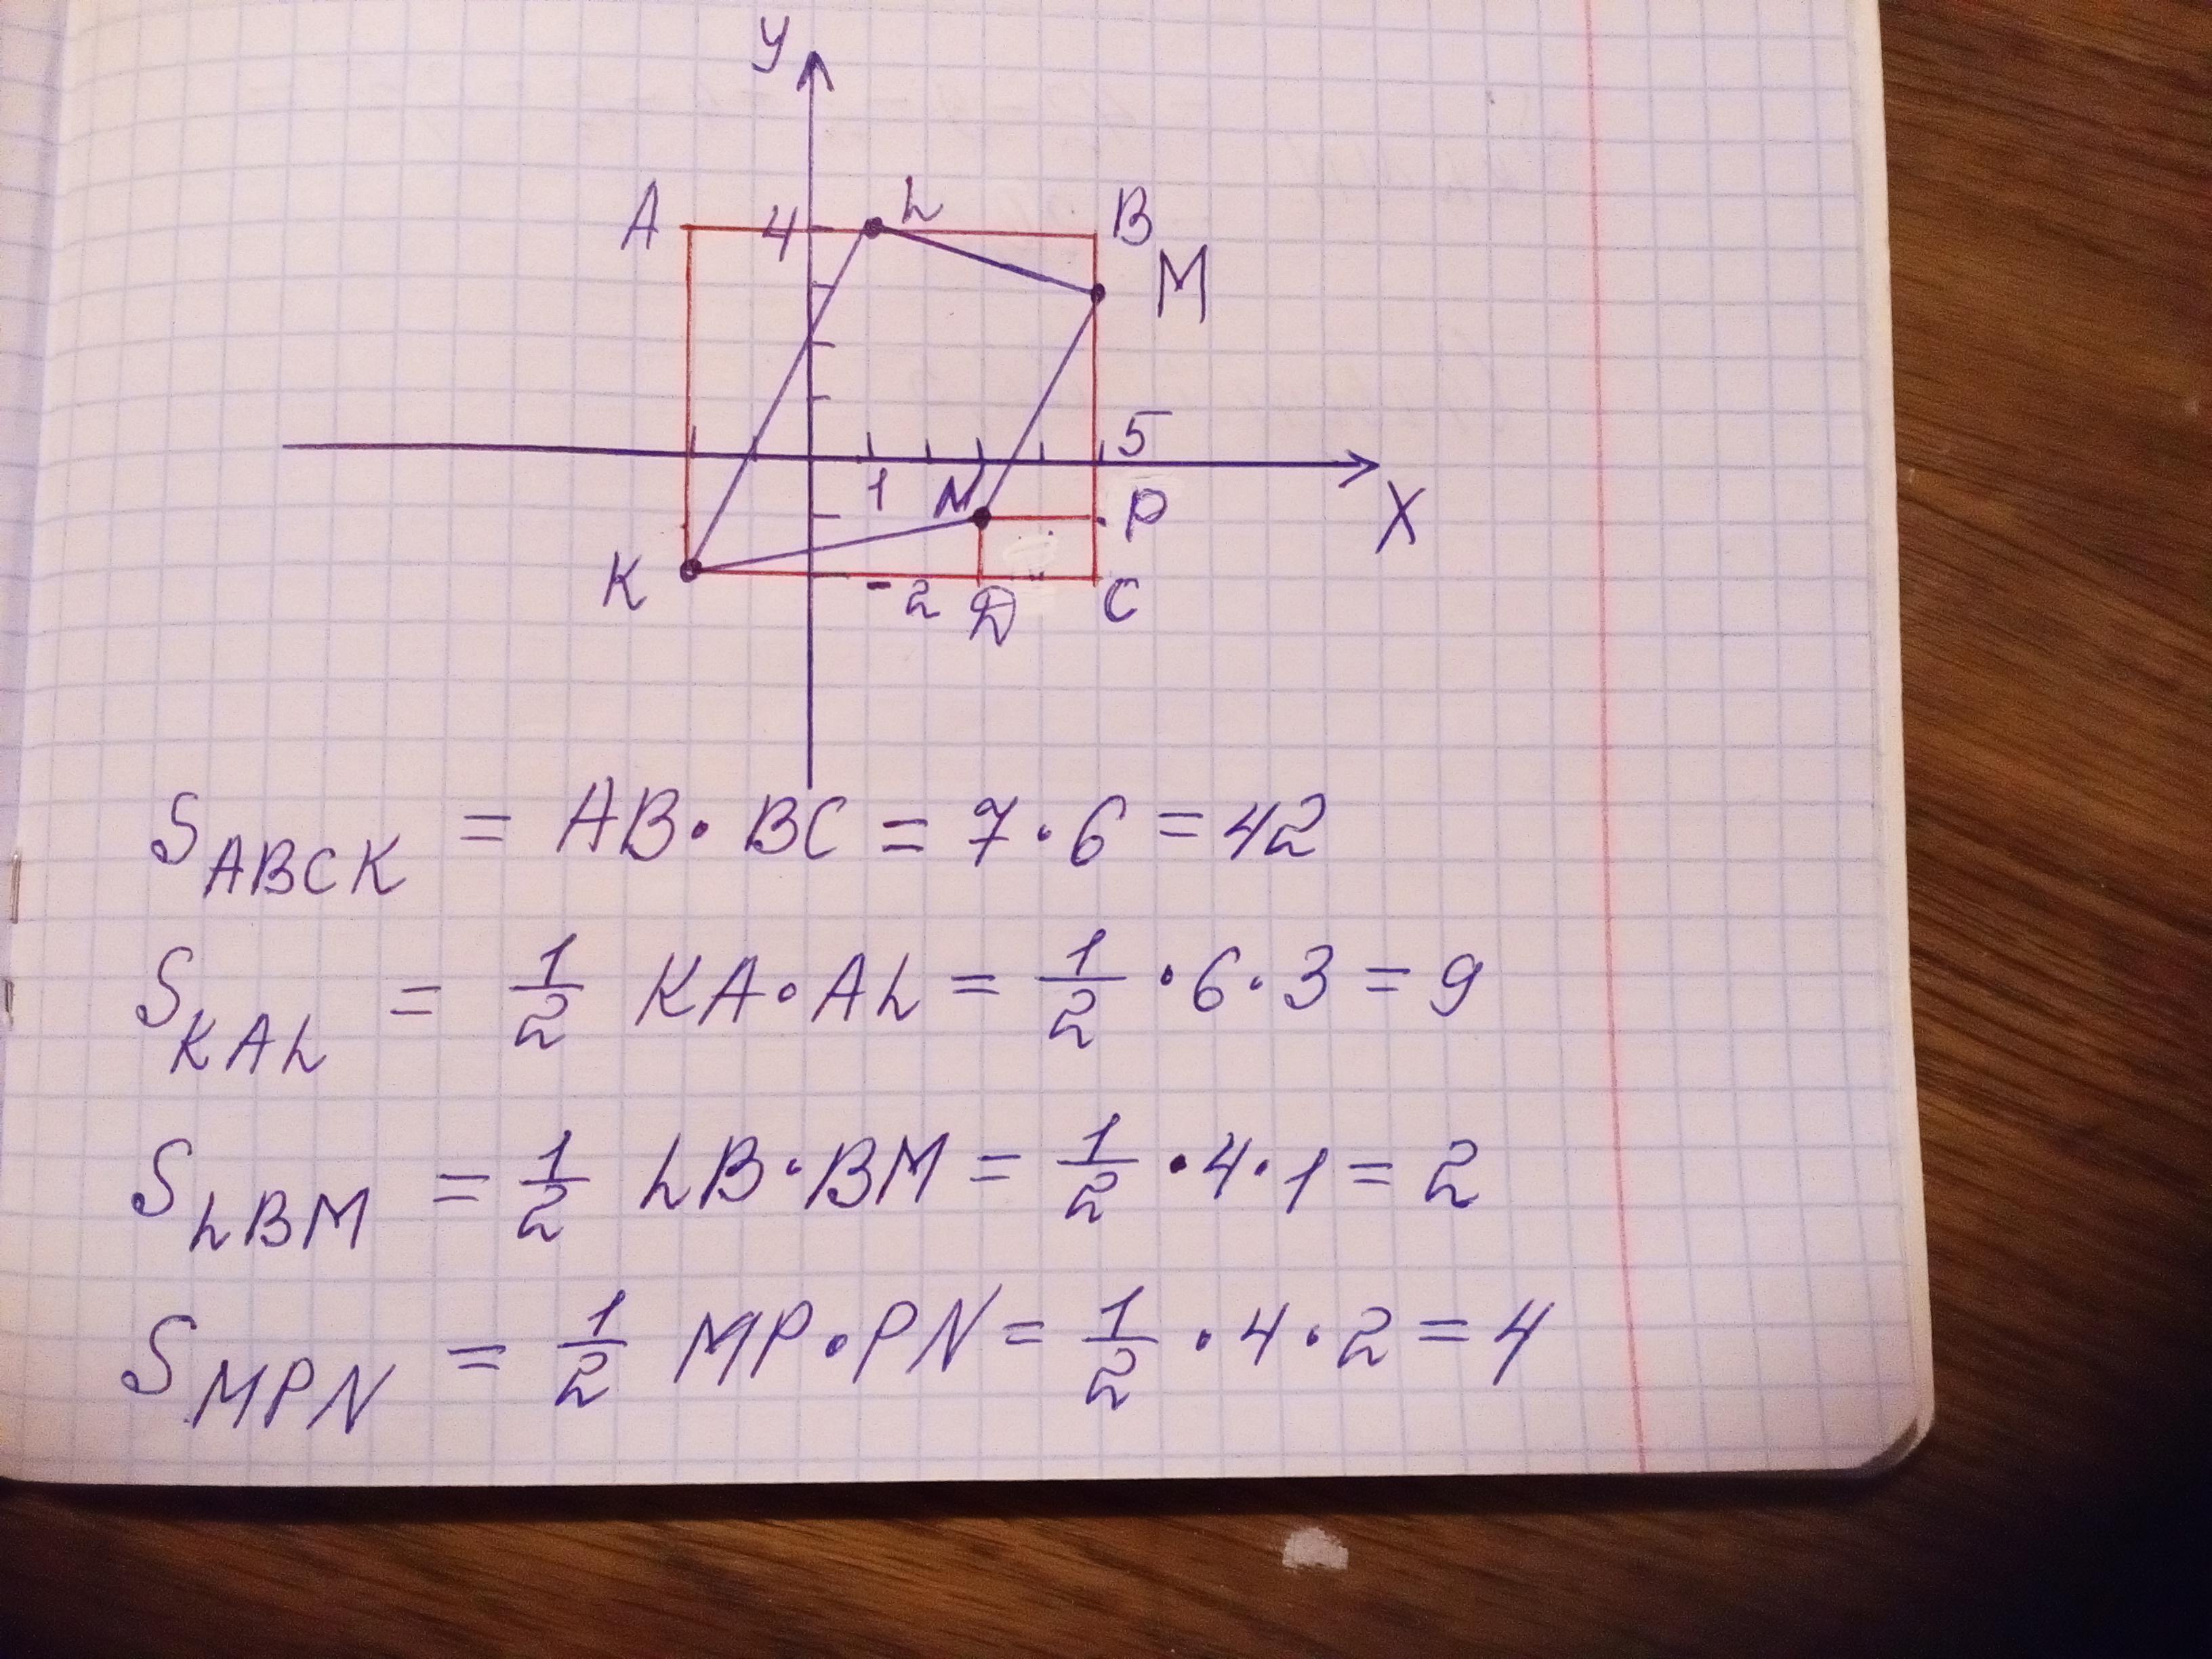 y
A 4 L B
M
5
1 N P X
K -2 D C
S_ABCK = AB · BC = 7 · 6 = 42
S_KAL = 1/2 KA · AL = 1/2 · 6 · 3 = 9
S_LBM = 1/2 LB · BM = 1/2 · 4 · 1 = 2
S_MPN = 1/2 MP · PN = 1/2 · 4 · 2 = 4